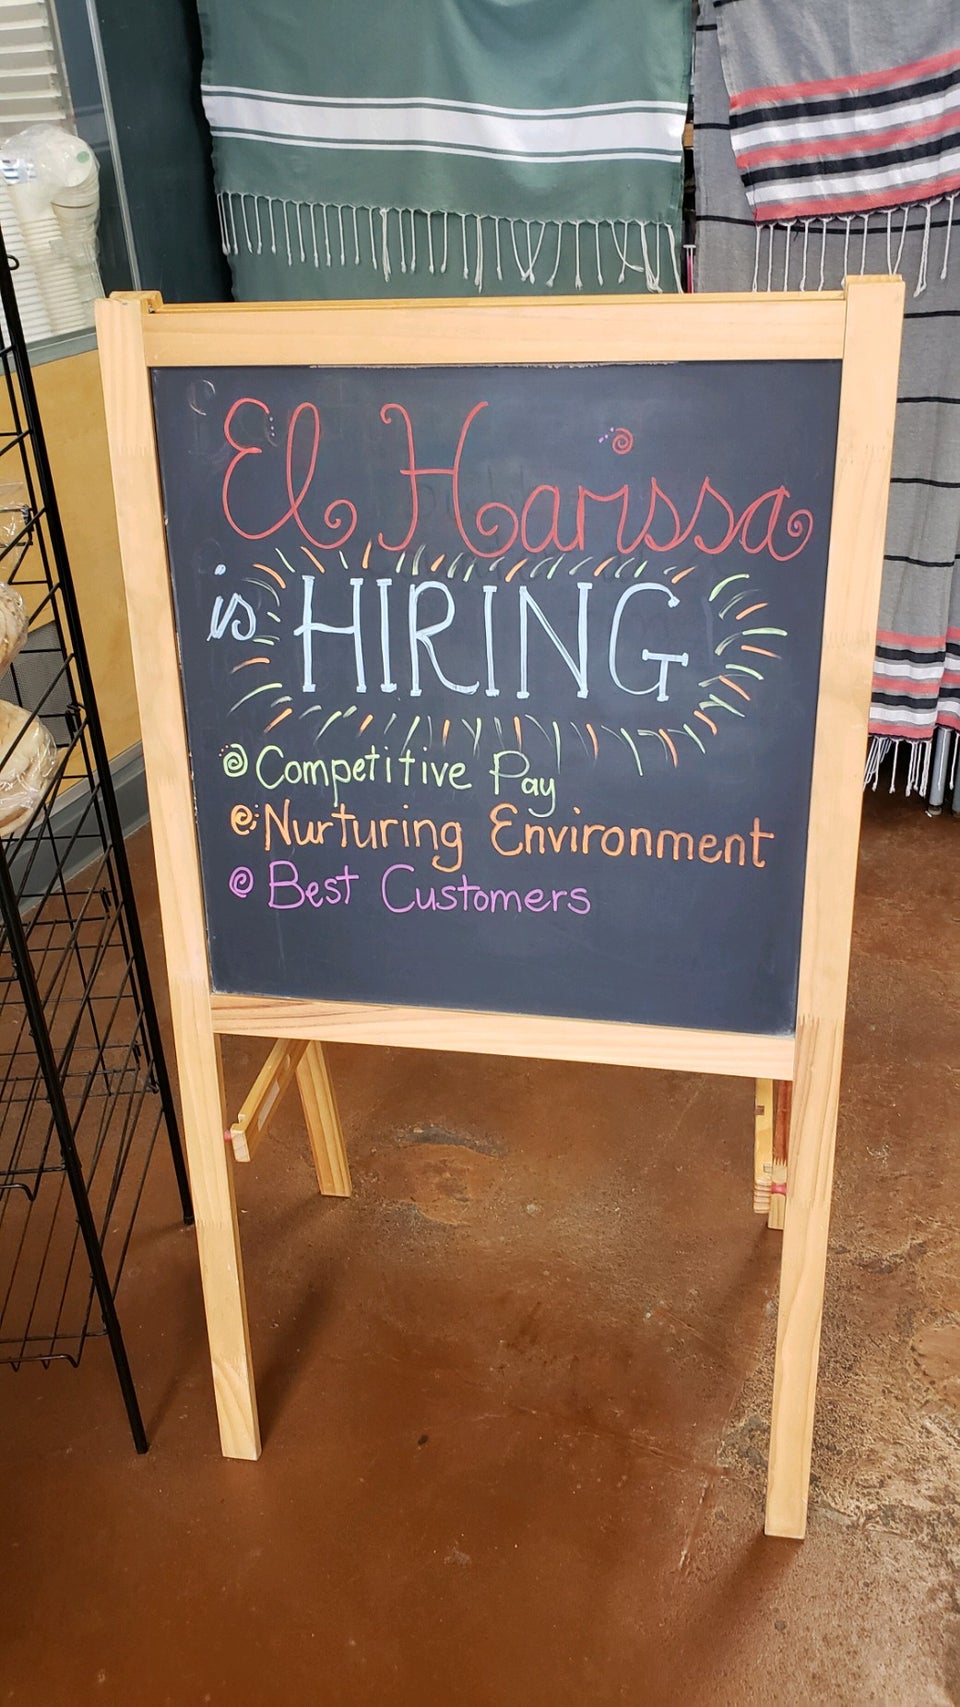 El Harissa
is HIRING
Competitive Pay
Nurturing Environment
Best Customers